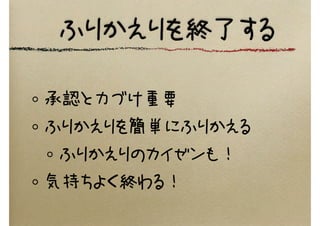 ふりかえりを終了する
承認と力づけ重要
ふりかえりを簡単にふりかえる
ふりかえりのカイゼンも！
気持ちよく終わる！